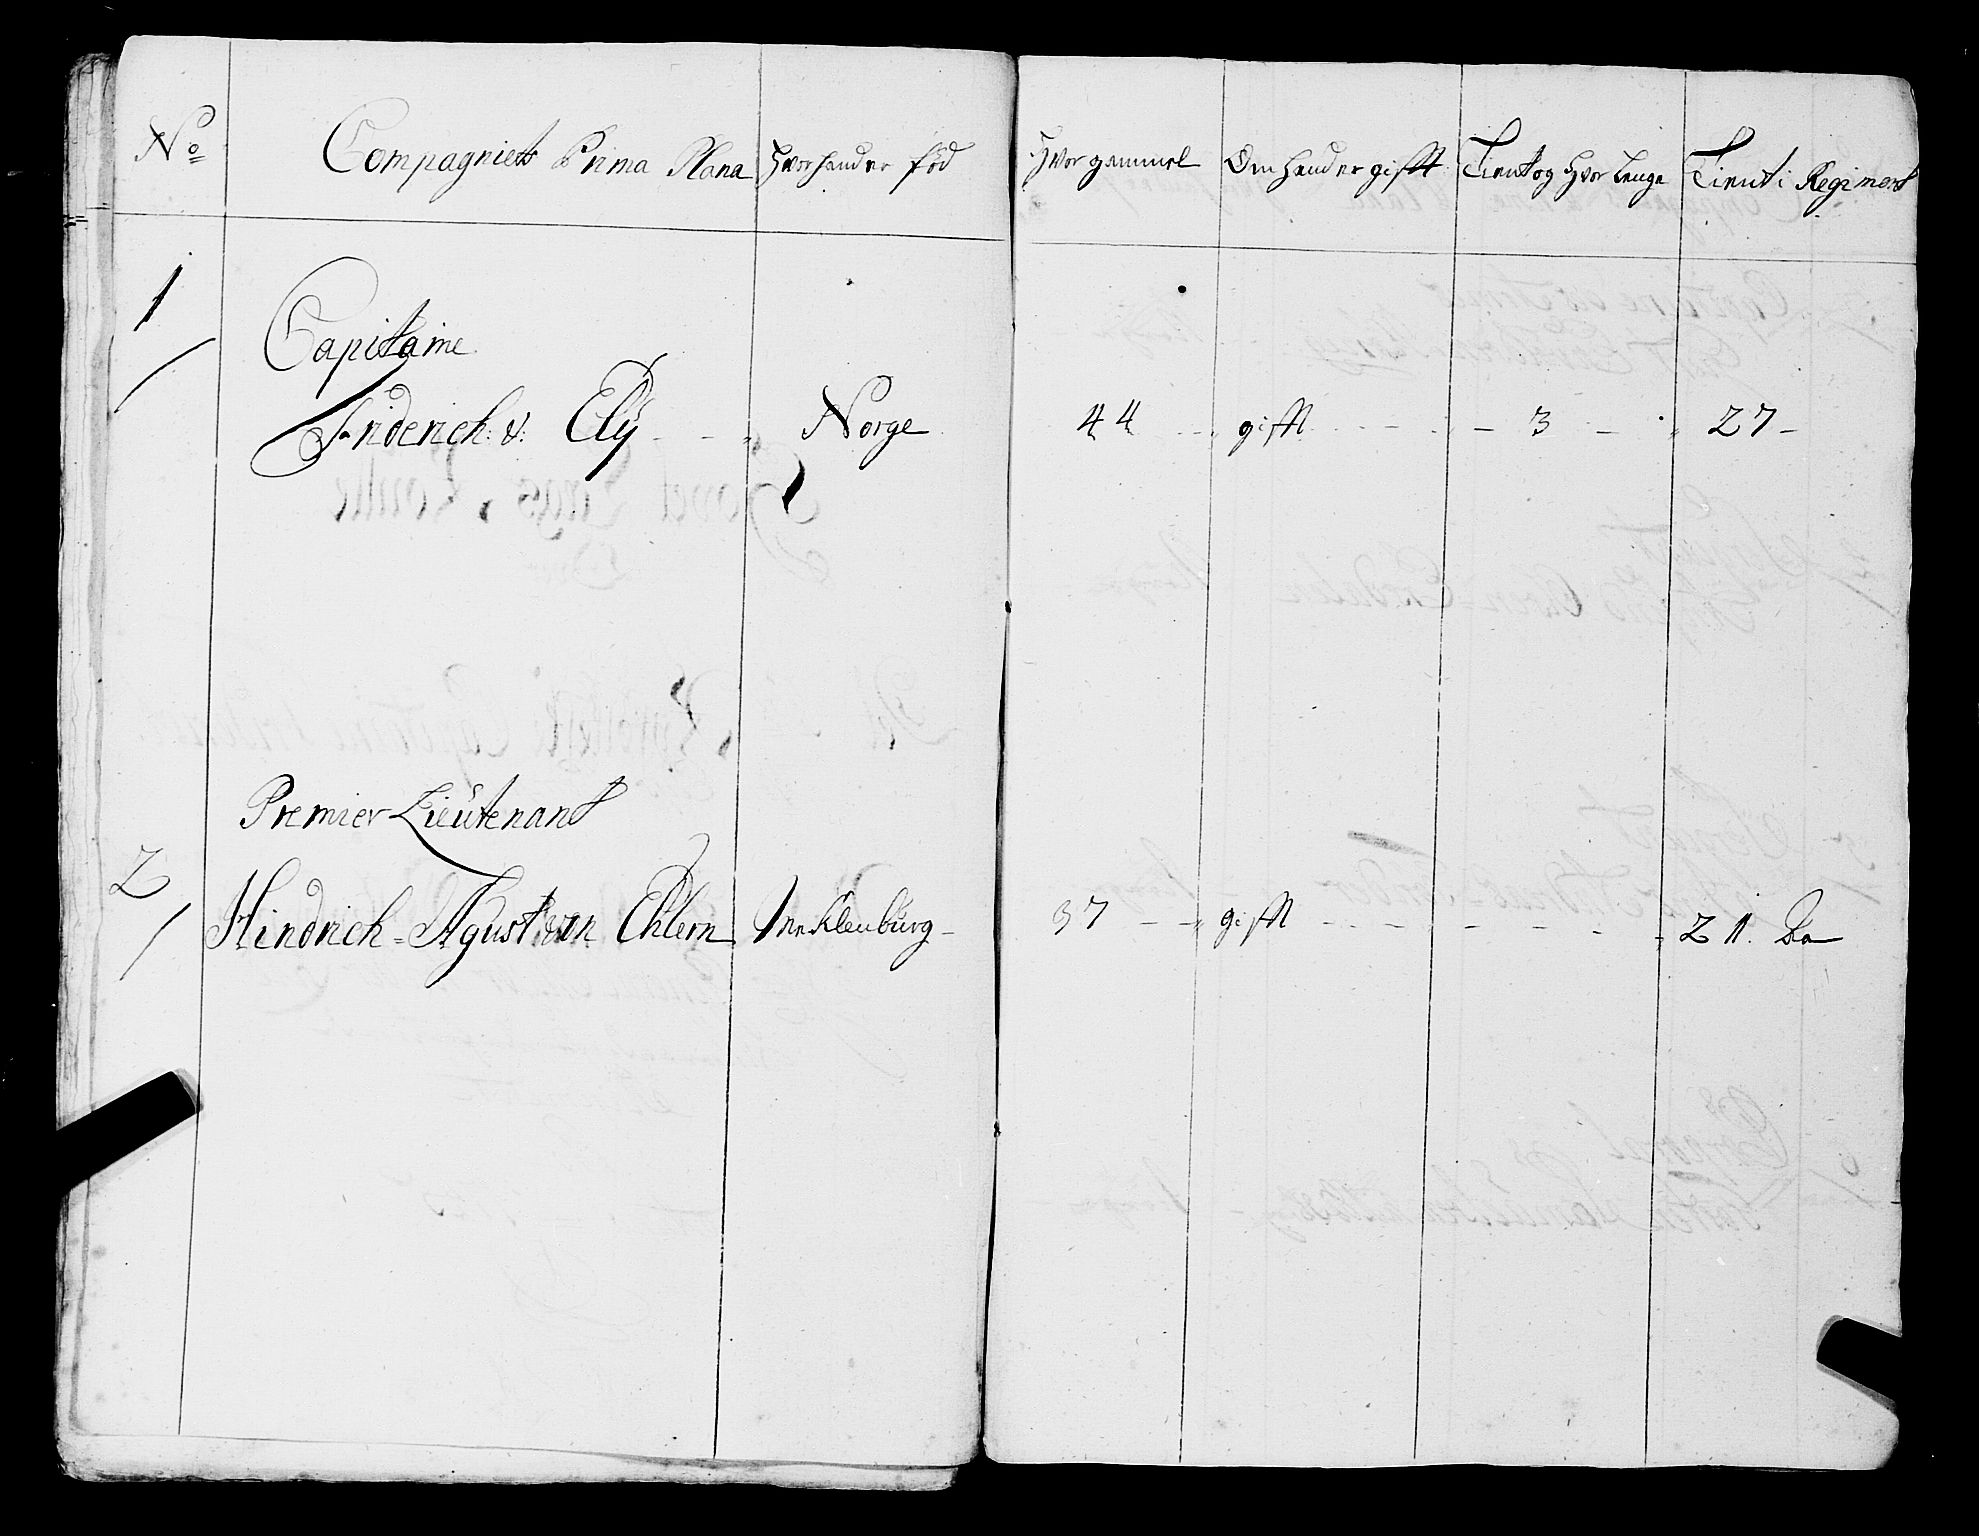 No Compagniets Prima Plana Hvor hand er föd Hvor gammel Om hand er gifft Tient og Hvor lenge Tient i Regiment
1
Capitaine
Friderich: v: Ely - - " Norge 44 - " gifft - - - - 3 - " 27 -
Premier Lieutenant
2
Hindrich = Agust von Ehlern Mecklenburg - 37 - - " gifft - - - - - - " 21.